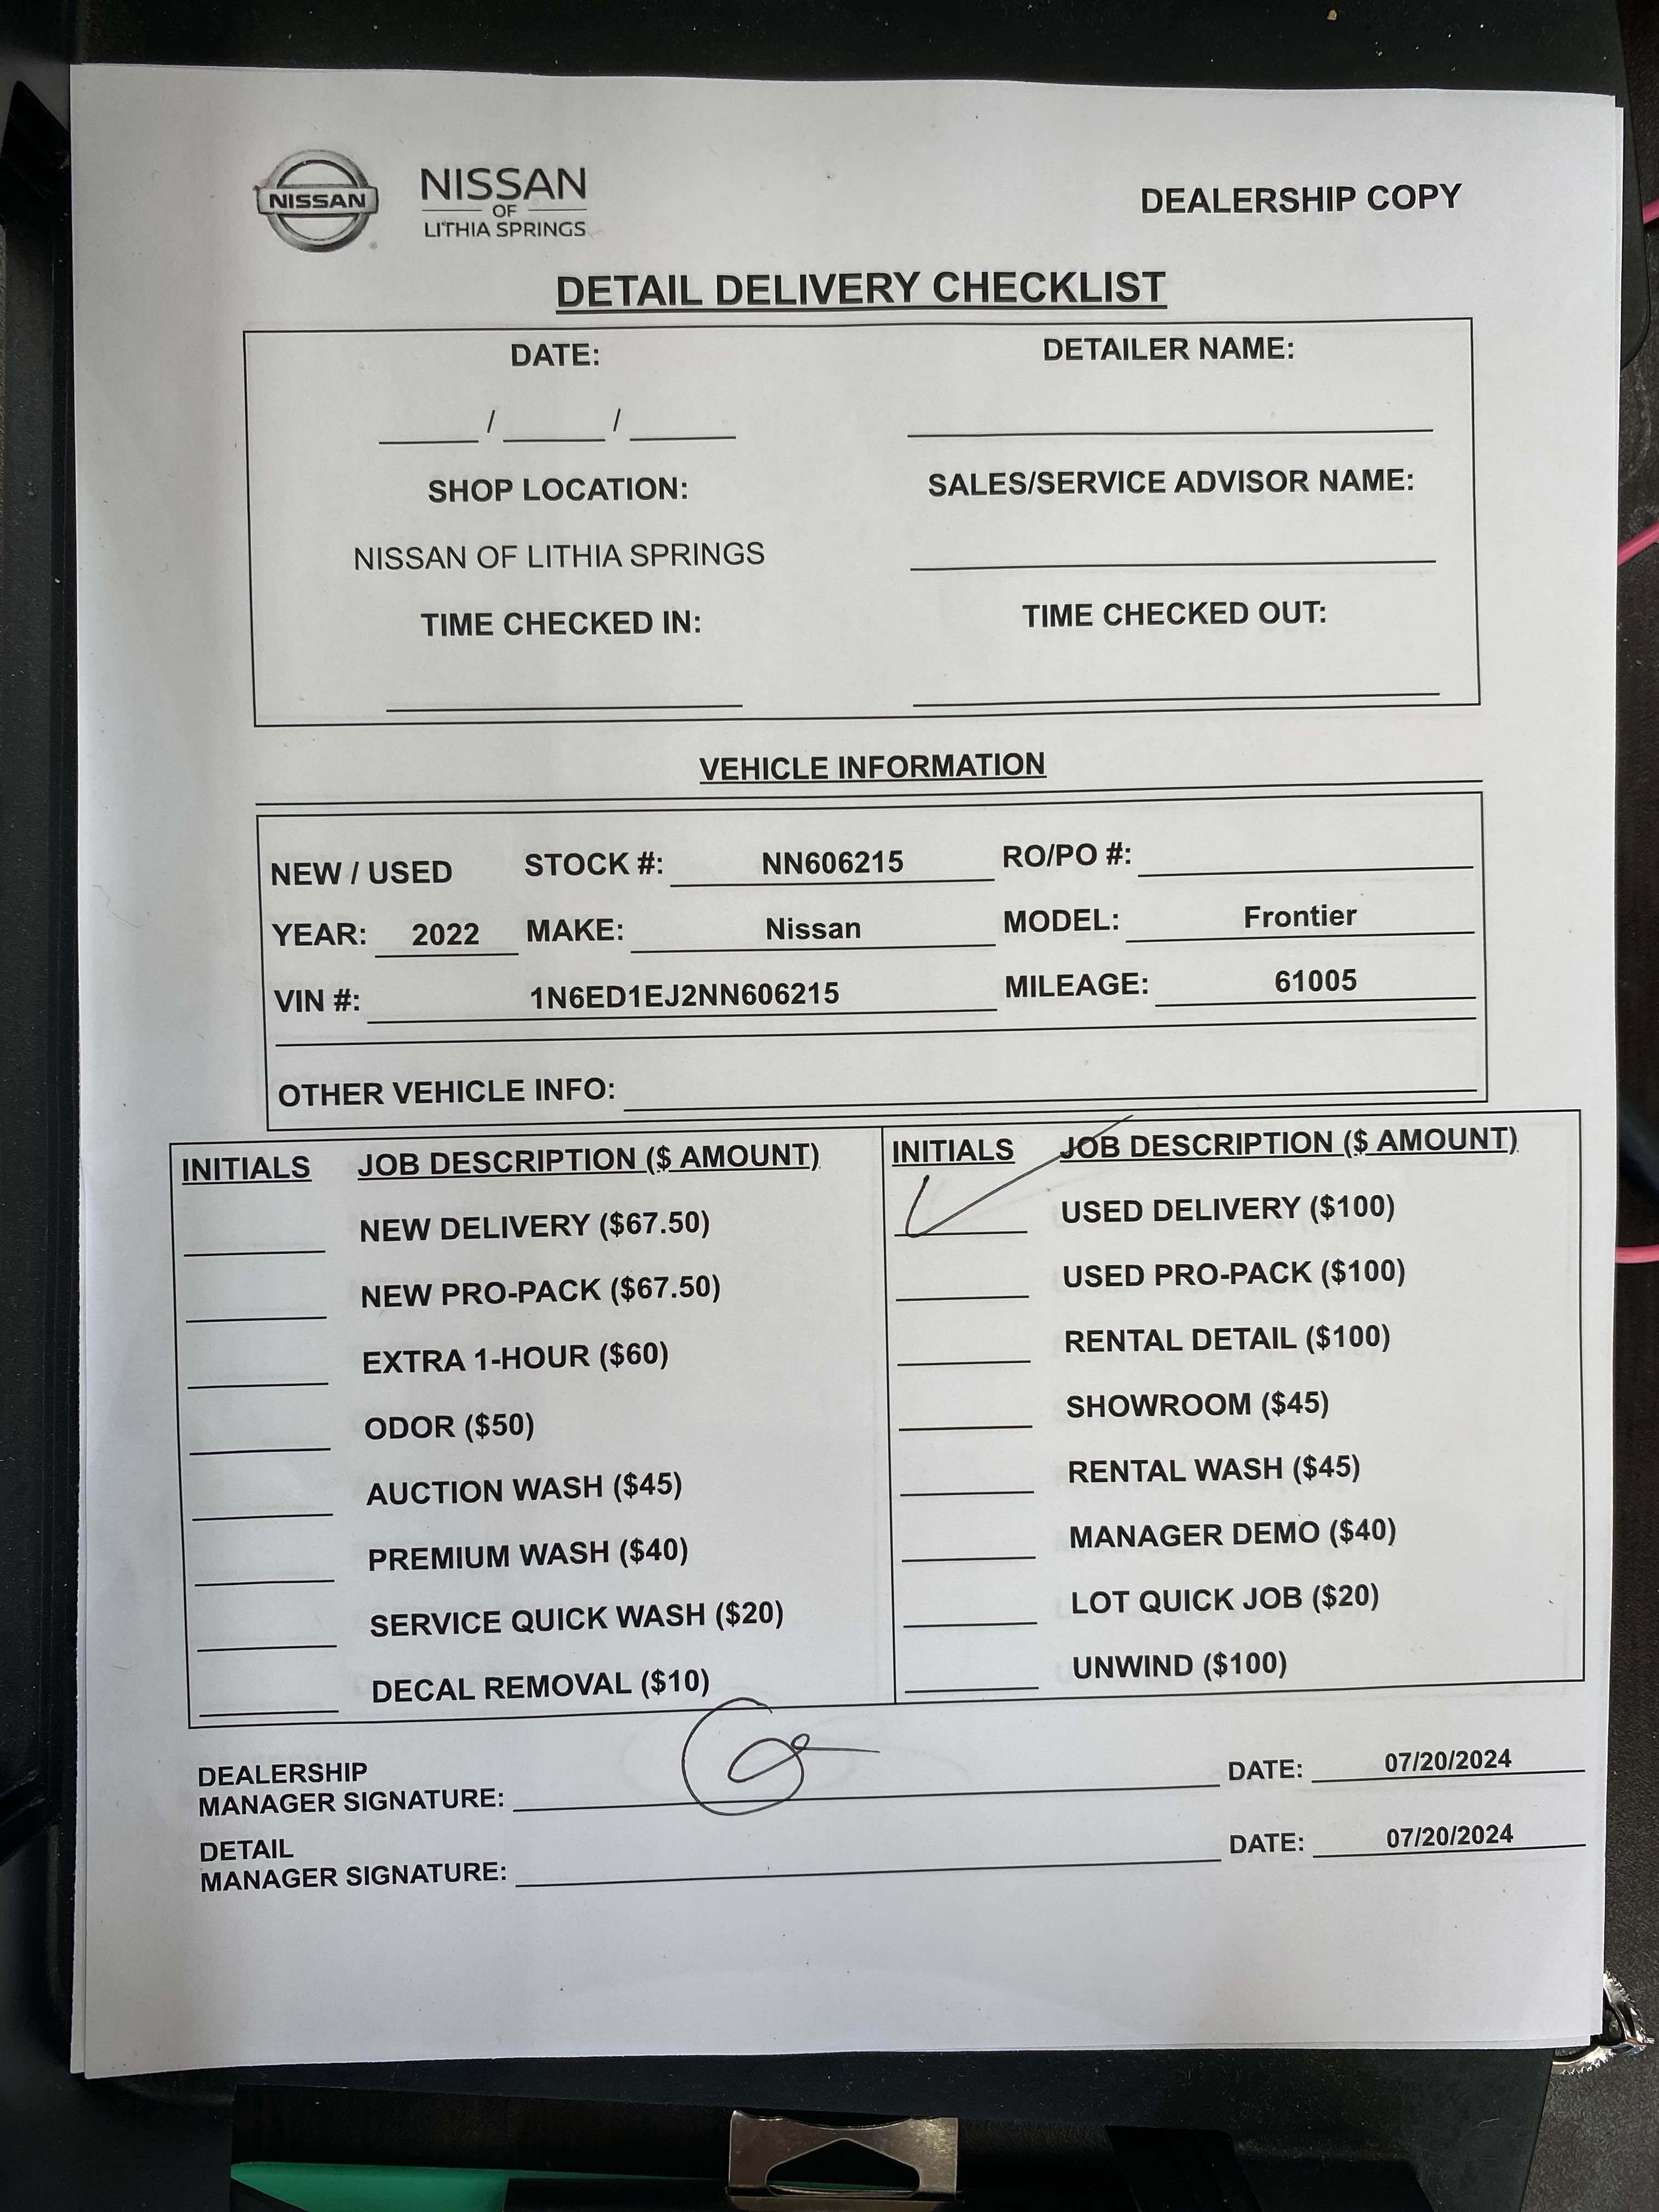 NISSAN
NISSAN
OF
LITHIA SPRINGS
DEALERSHIP COPY
DETAIL DELIVERY CHECKLIST
DATE: DETAILER NAME:
____ / ____ / ____
SHOP LOCATION: SALES/SERVICE ADVISOR NAME:
NISSAN OF LITHIA SPRINGS
TIME CHECKED IN: TIME CHECKED OUT:
VEHICLE INFORMATION
NEW / USED STOCK #: NN606215 RO/PO #:
YEAR: 2022 MAKE: Nissan MODEL: Frontier
VIN #: 1N6ED1EJ2NN606215 MILEAGE: 61005
OTHER VEHICLE INFO:
INITIALS JOB DESCRIPTION ($ AMOUNT) INITIALS JOB DESCRIPTION ($ AMOUNT)
NEW DELIVERY ($67.50) USED DELIVERY ($100)
NEW PRO-PACK ($67.50) USED PRO-PACK ($100)
EXTRA 1-HOUR ($60) RENTAL DETAIL ($100)
ODOR ($50) SHOWROOM ($45)
AUCTION WASH ($45) RENTAL WASH ($45)
PREMIUM WASH ($40) MANAGER DEMO ($40)
SERVICE QUICK WASH ($20) LOT QUICK JOB ($20)
DECAL REMOVAL ($10) UNWIND ($100)
DEALERSHIP
MANAGER SIGNATURE: DATE: 07/20/2024
DETAIL
MANAGER SIGNATURE: DATE: 07/20/2024